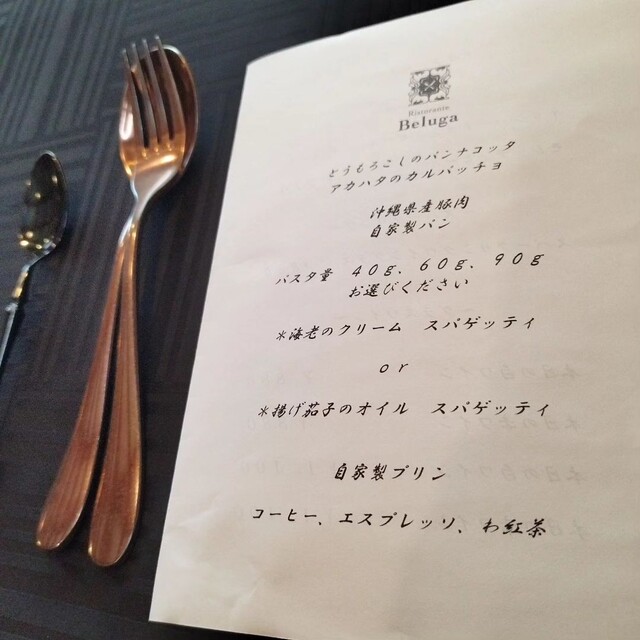 Ristorante
Beluga
とうもろこしのパンナコッタ
アカハタのカルパッチョ
沖縄県産豚肉
自家製パン
パスタ量　40g、60g、90g
お選びください
*海老のクリーム　スパゲッティ
or
*揚げ茄子のオイル　スパゲッティ
自家製プリン
コーヒー、エスプレッソ、わ紅茶